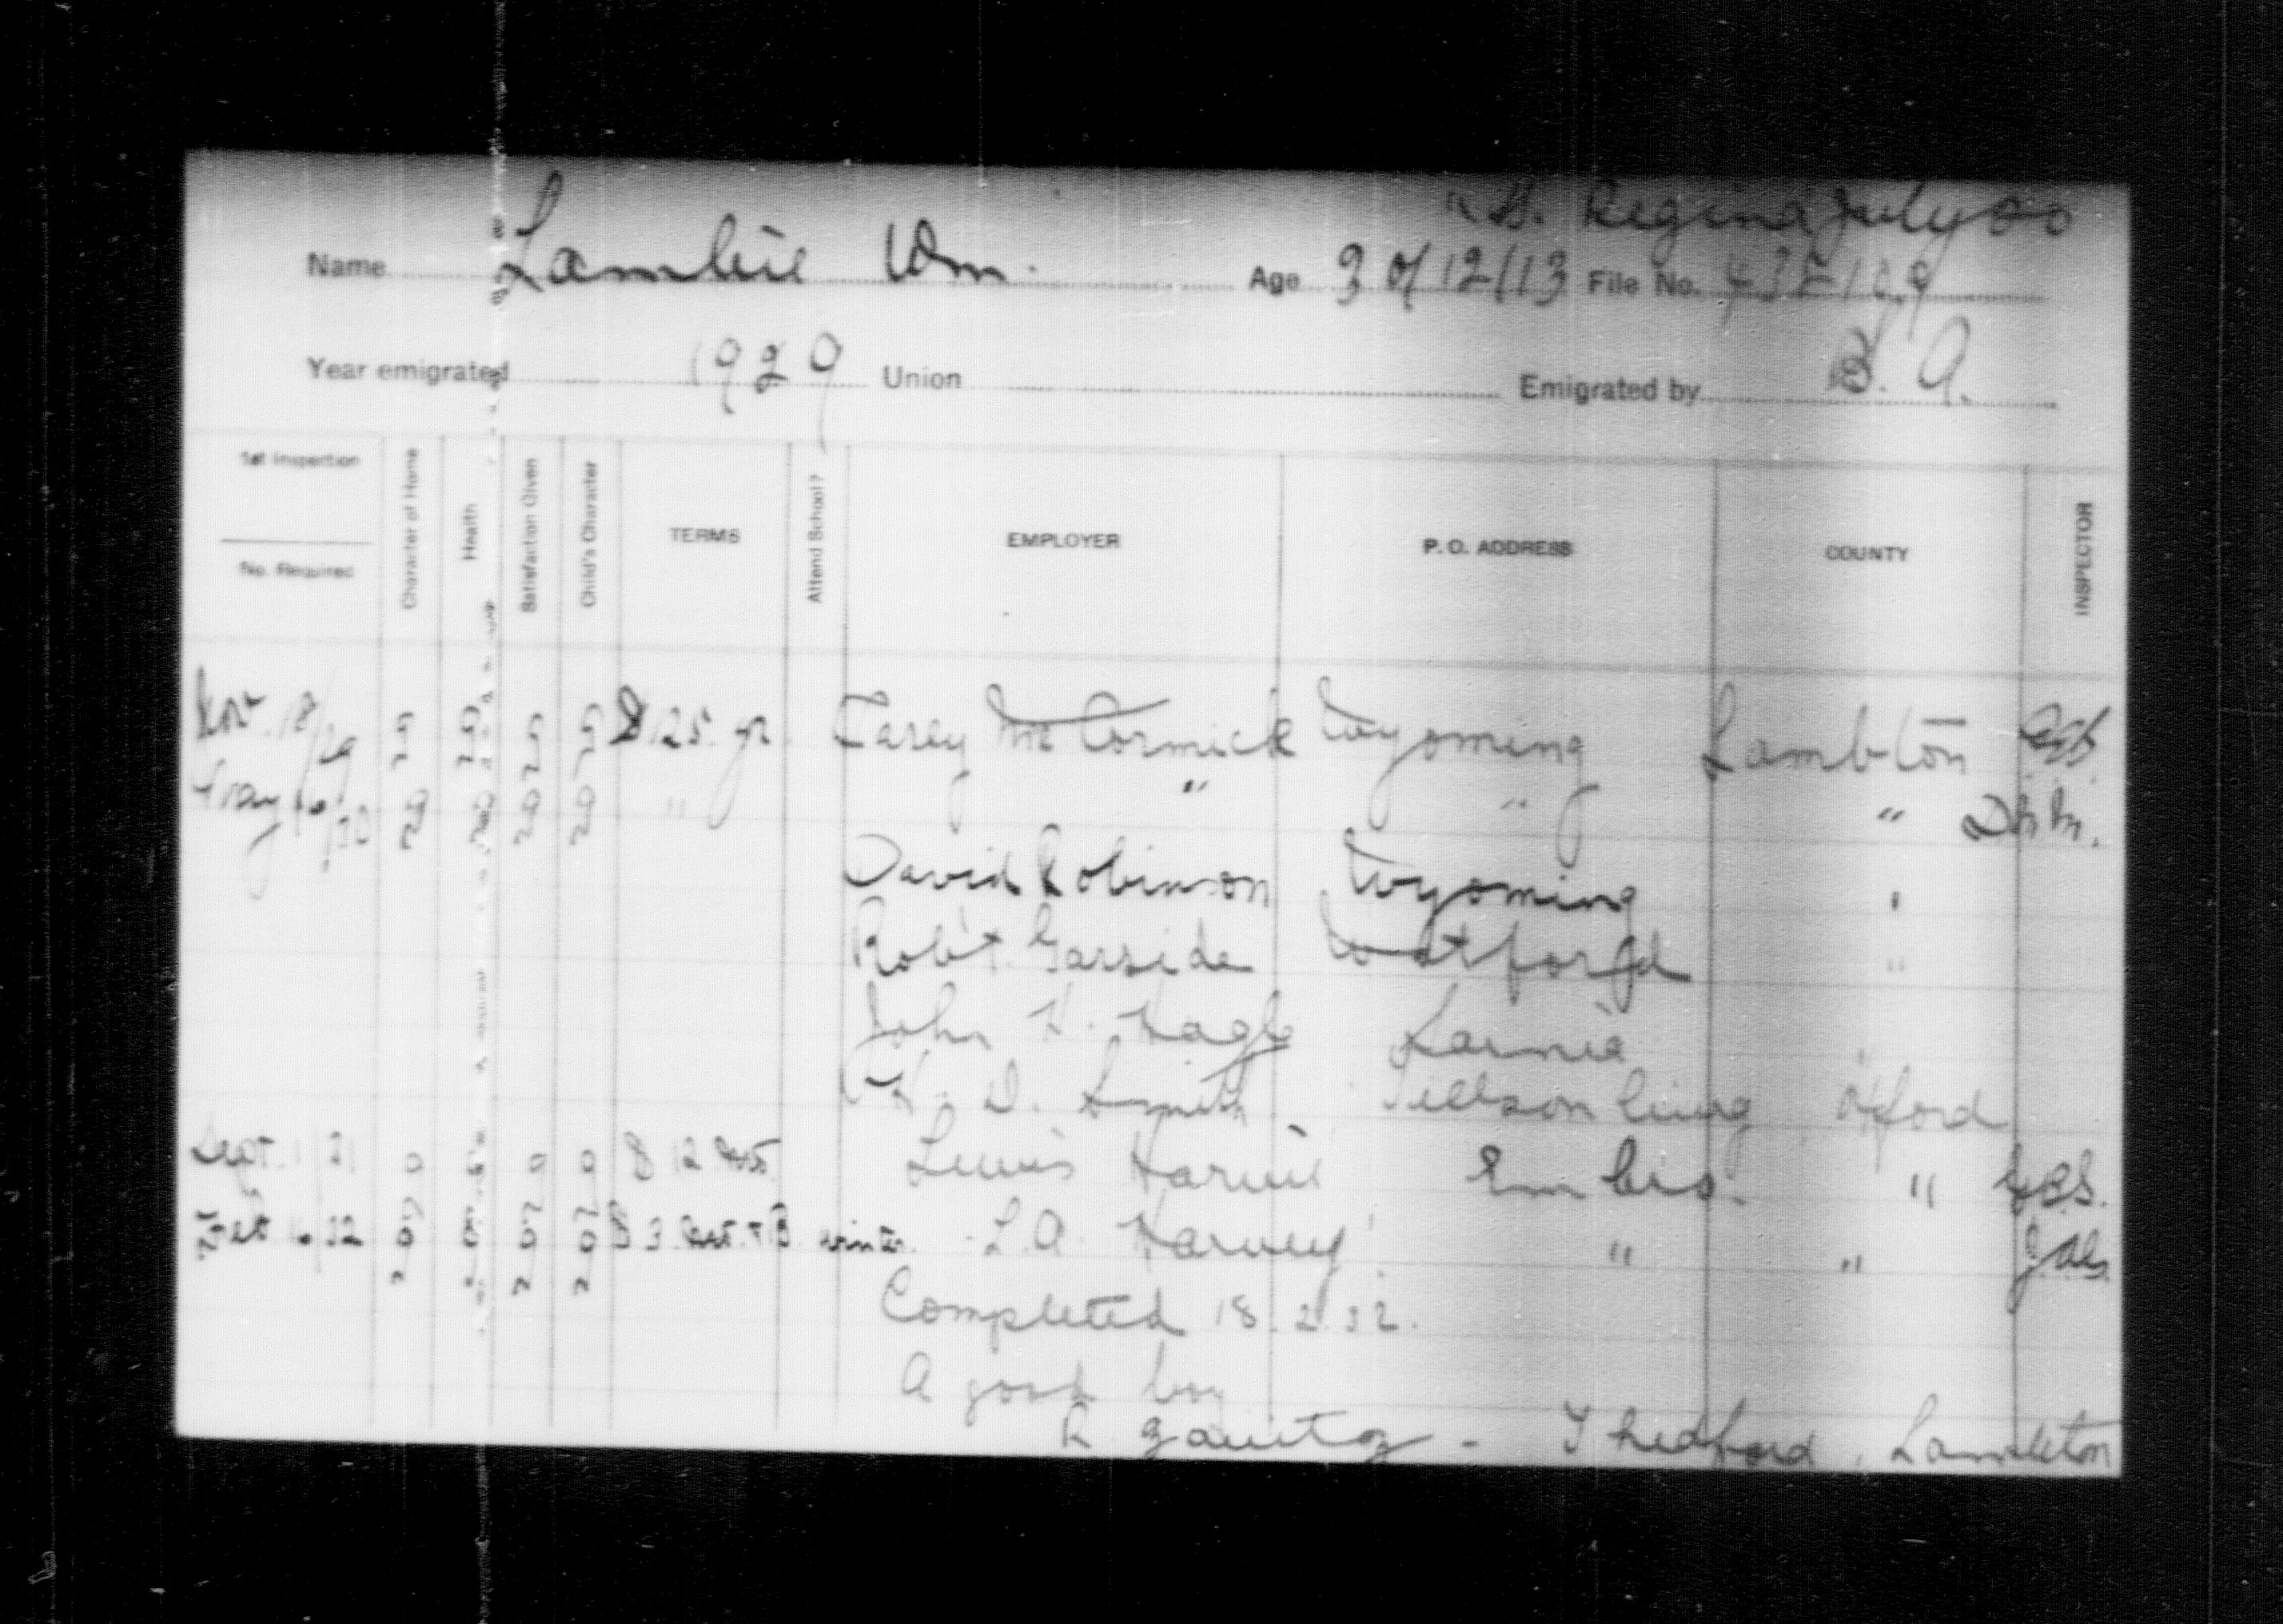 Regina July
Name Lambie Wm. Age 30/12/13 File No.
Year emigrated 1929 Union Emigrated by S. A.
1st Inspection
No. Required
Character of Home
Health
Satisfaction Given
Child's Character
TERMS
Attend School?
EMPLOYER
P.O. ADDRESS
COUNTY
INSPECTOR
Nov. 18/29 $125 yr. McCormick Wyoming Lambton
May " " " "
David Robinson Wyoming "
Rob't Garside Watford "
John H. Hagle Sarnia "
D. Smith Tillsonburg Oxford
Sept. 31 $ 12 Lewis Harvie Embro. "
Feb 32 winter. L.A. Harvey " "
Completed 18.2.32.
A good boy
R Gavitz - Thedford, Lambton